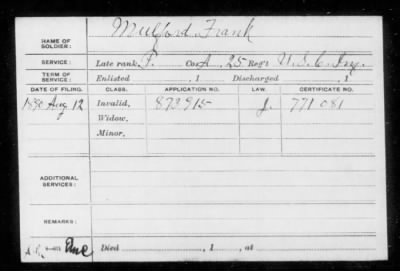 Mulford Frank
NAME OF SOLDIER:
SERVICE: Late rank, P. Co. A, 25 Reg't U.S.C. Inf.
TERM OF SERVICE: Enlisted , 1 Discharged , 1
DATE OF FILING. CLASS. APPLICATION NO. LAW. CERTIFICATE NO.
1890 Aug 12 Invalid, 873915 J. 771081
Widow,
Minor,
ADDITIONAL SERVICES:
REMARKS:
Died , 1 , at